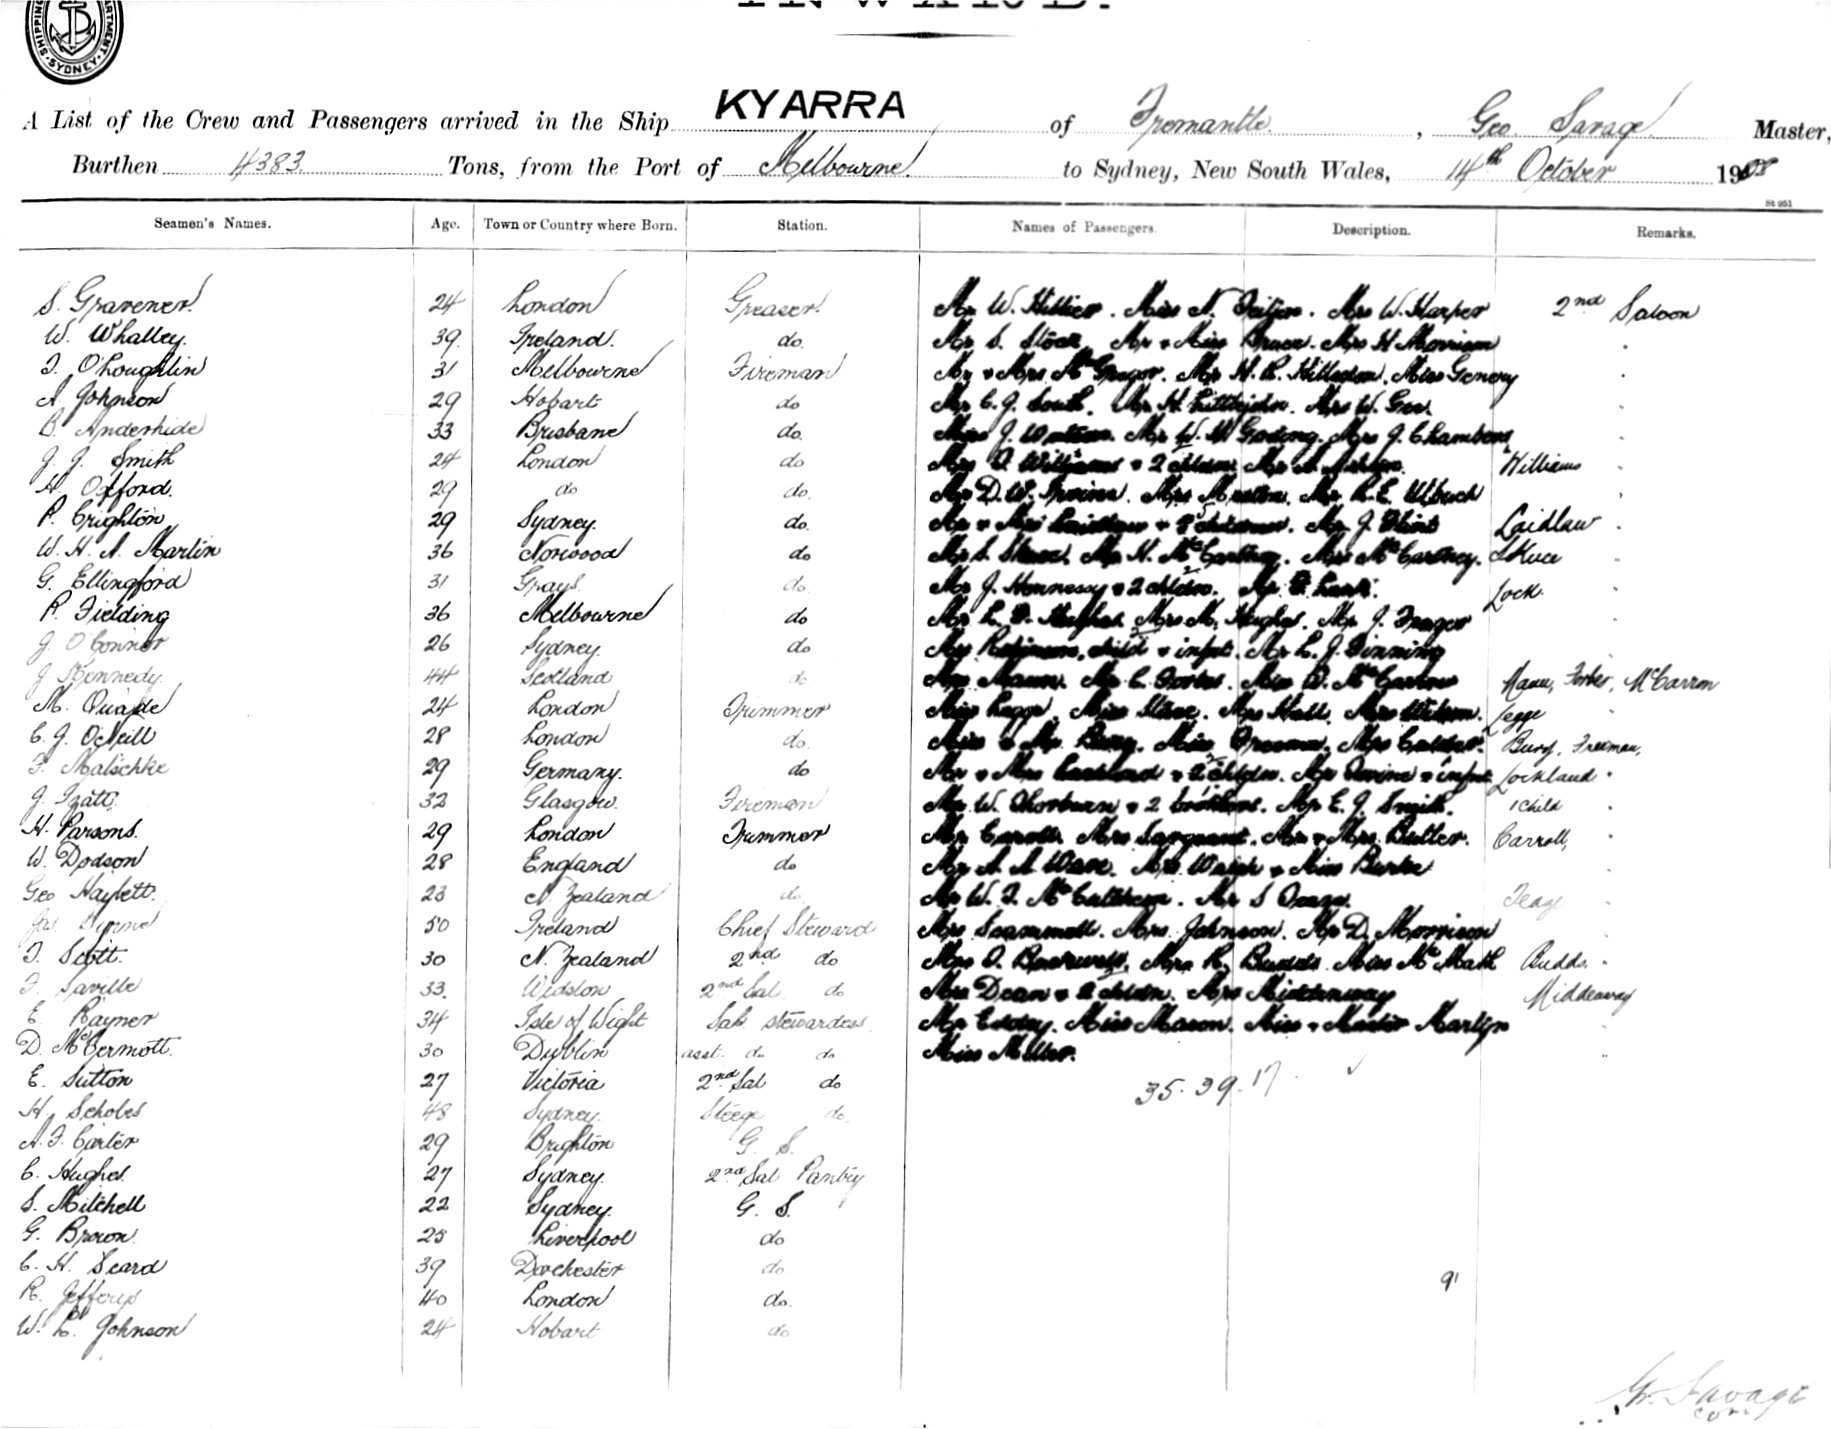 INWARD.
SHIPPING DEPARTMENT SYDNEY
A List of the Crew and Passengers arrived in the Ship KYARRA of Fremantle, Geo. Savage Master,
Burthen 4383 Tons, from the Port of Melbourne to Sydney, New South Wales, 14th October 1908
St 951
Seamen's Names. Age. Town or Country where Born. Station. Names of Passengers. Description. Remarks.
S. Gravener 24 London Greaser Mr W. Hillier. Miss N. Mrs W. Harper 2nd Saloon
W. Whalley. 39 Ireland. do. Mr S. Mr & Miss Bruce. Mrs H Morrison
T. O'Loughlin 31 Melbourne Fireman Mr & Mrs McGregor. Mr H. R. Miss Genery
A. Johnson 29 Hobart do Mr C. J. South. Mr H. Littlejohn. Mrs W. Gee.
B. Anderhide 33 Brisbane do. Miss J. Mr W. M Mrs J. Chambers
J. J. Smith 24 London do Mrs Williams & 2 chldn. Mr A. Williams
H. Offord. 29 do do. Mr D. W. Irvine. Mrs Mr R. E.
P. Crighton 29 Sydney. do. Mr & Mrs Laidlaw & children. Mr J. Flint Laidlaw
W. H. A. Martin 36 Norwood do Mr S. Mr H. McCartney. Mrs McCartney. Skuce
G. Ellingford 31 Grays do. Mr J. Hennessy & 2 chldn. Mr Lock. Lock
P. Fielding 36 Melbourne do Mr L. Hughes. Mrs M. Hughes. Mr J. Fraser
J. O'Connor 26 Sydney. do Mrs Robinson, child & infnt. Mr L. J. Dinning
J Kennedy. 44 Scotland do Mrs Mann. Mr C. Forbes. Miss McCarron Mann, Forbes, McCarron
M. Quaide 24 London Trimmer Miss Legge. Miss Mrs Hall. Mrs Legge
C. J. O'Neill 28 London do. Miss & Mr Burg. Miss Freeman. Mrs Calder. Burg, Freeman,
F. Matschke 29 Germany. do Mr & Mrs Lockland & 2 chldn. Mrs Irvine & infnt Lockland
J. Izatt. 32 Glasgow. Fireman Mr W. Thorburn & 2 Mr E. J. Smith. 1 child
H. Parsons. 29 London Trimmer Mr Carroll. Mrs Sargeant. Mr & Mrs Butler. Carroll,
W. Dodson 28 England do Mr A. A. Ware. Mrs & Miss Burke
Geo Haylett. 23 N. Zealand do Mr W. T. Mr S Teage. Teage
Jas. Byrne 50 Ireland Chief Steward Mrs Scammell. Mrs Johnson. Mr D. Morrison
T. Scott. 30 N. Zealand 2nd do Mrs Mrs R. Budds. Miss McMath Budds.
F. Saville 33. Widston 2nd Sal. do Mrs Dean & 2 chldn. Mrs Middenway Middenway
E Rayner 34 Isle of Wight Sal. stewardess Mr Eddey. Miss Mason. Miss & Master Martyn
D. McDermott. 30 Dublin asst. do do Miss Miller.
E. Sutton 27 Victoria 2nd Sal do 35. 39. 17
H. Scholes 48 Sydney. Steege do.
A. F. Carter 29 Brighton G. S.
C. Hughes. 27 Sydney. 2nd Sal Pantry
S. Mitchell 22 Sydney. G. S.
G. Brown. 25 Liverpool do
C. H. Seard 39 Dorchester do 91
R. Jefferys 40 London do.
W. L. Johnson 24 Hobart do
G. Savage